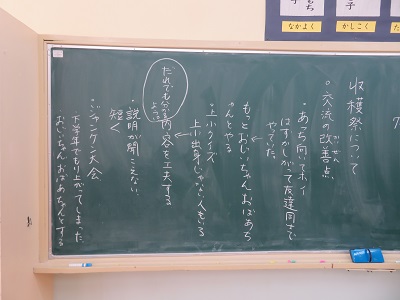 なかよく
かしこく
収穫祭について
○交流の改善点
かいぜん
・あっち向いてホイ
はずかしがって友達同士で
やっていた。
もっとおじいちゃんおばあち
ゃんとやる
・上小クイズ
上小出身じゃない人もいる
だれでも分かる
ような
内容を工夫する
・説明が聞こえない
短く
・ジャンケン大会
下学年でもり上がってしまった
おじいちゃんおばあちゃんとする